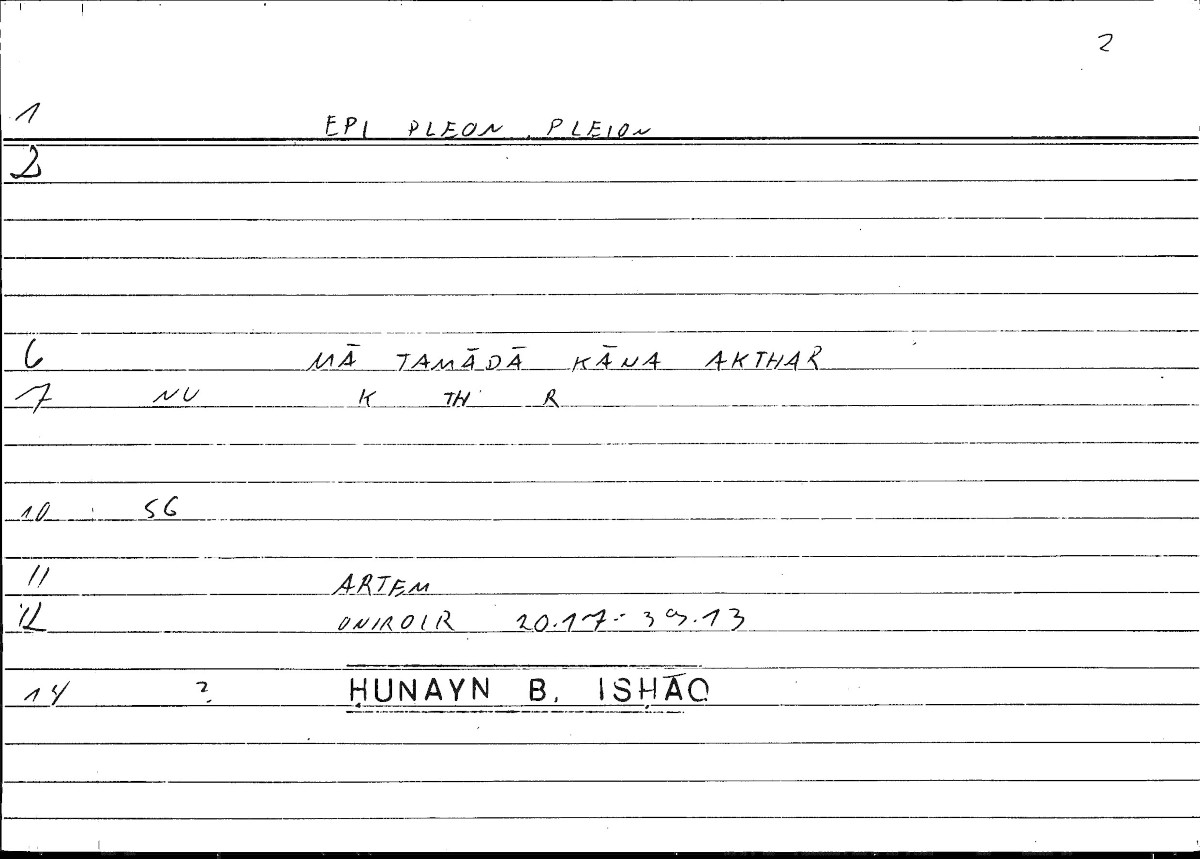 2
1 EPI PLEON, PLEION
2
6 MĀ TAMĀDĀ KĀNA AKTHAR
7 NU K TH R
10 SG
11 ARTEM
12 ONIROCR 20.17-39.13
14 ? ḤUNAYN B. ISḤĀQ